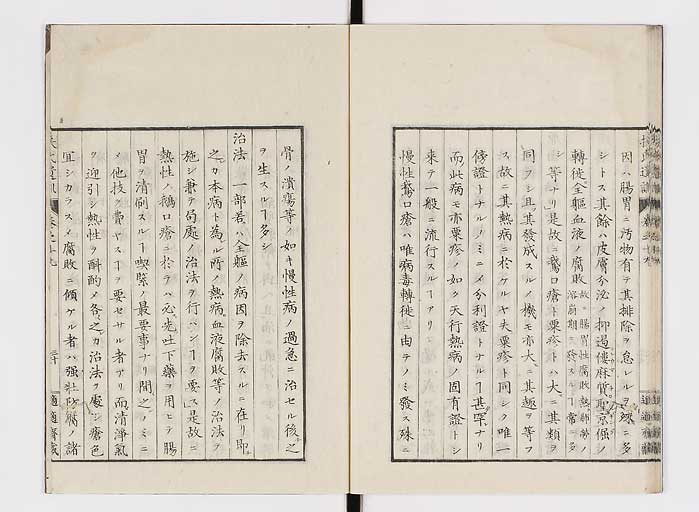 因ハ腸胃ニ汚物有テ其排除ヲ怠レルヲ ニ多
シトス其餘ハ皮膚分泌ノ抑遏僂麻質聖京倔ノ
轉徙全軀血液ノ腐敗故ニ腸胃性腐敗熱肺勞ノ溶崩期ニ發スルヿ常ニ多
シ等ナリ是故ニ鵞口瘡ト粟疹トハ大ニ其類ヲ
同フシ且其發成スルノ機モ亦大ニ其趣ヲ等フ
ス故ニ其熱病ニ於ケルヤ夫粟疹ト同シク唯一
傍證トナルノミニメ分利證トナルヿ甚罕ナリ
而此病モ亦粟疹ノ如ク天行熱病ノ固有證トシ
來テ一般ニ流行スルヿアリ
慢性鵞口瘡ハ唯病毒轉徙ニ由テノミ發ス殊ニ
骨ノ潰瘍等ノ如キ慢性病ノ過急ニ治セル後之
ヲ生スルヿ多シ
治法 一部若ハ全軀ノ病因ヲ除去スルニ在リ即
之カ本病ト為ル所ノ熱病血液腐敗等ノ治法ヲ
施シ兼テ局處ノ治法ヲ行ハンヿヲ要ス是故ニ
熱性ノ鵞口瘡ニ於テハ必先吐下藥ヲ用ヒテ腸
胃ヲ清刷スルヿ喫緊ノ最要事ナリ間之ノミニ
メ他技ヲ費ヤスヿヲ要セサル者アリ而清淨氣
ヲ迎引シ熱性ヲ斟酌メ各之カ治法ヲ處シ瘡色
宜シカラスメ腐敗ニ傾ケル者ハ強壯防腐ノ諸
適適齋藏